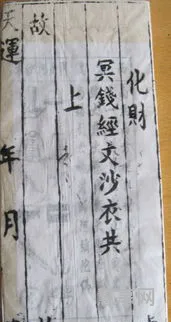 化財
冥錢經文沙衣共
上
故
天運 年 月